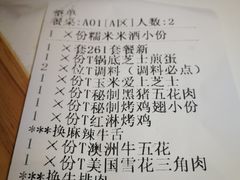 餐单
餐桌:A01[A区]人数:2
1 ×份糯米米酒小份
1 ×套261套餐新
1 ×份T锅底芝士煎蛋
2 ×位T调料(调料必点)
1 ×份T玉米爱上芝士
1 ×份T秘制黑猪五花肉
1 ×份T秘制烤鸡翅小份
1 ×份T红淋烤鸡
***换麻辣牛舌
1 ×份T澳洲牛五花
1 ×份T美国雪花三角肉
***换牛排肉